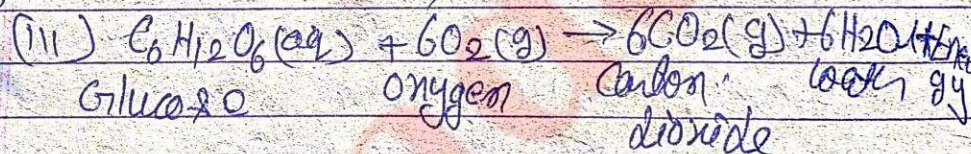 (III) C6H12O6(aq) + 6O2(g) → 6CO2(g) + 6H2O + Energy
Glucose oxygen Carbon water
dioxide